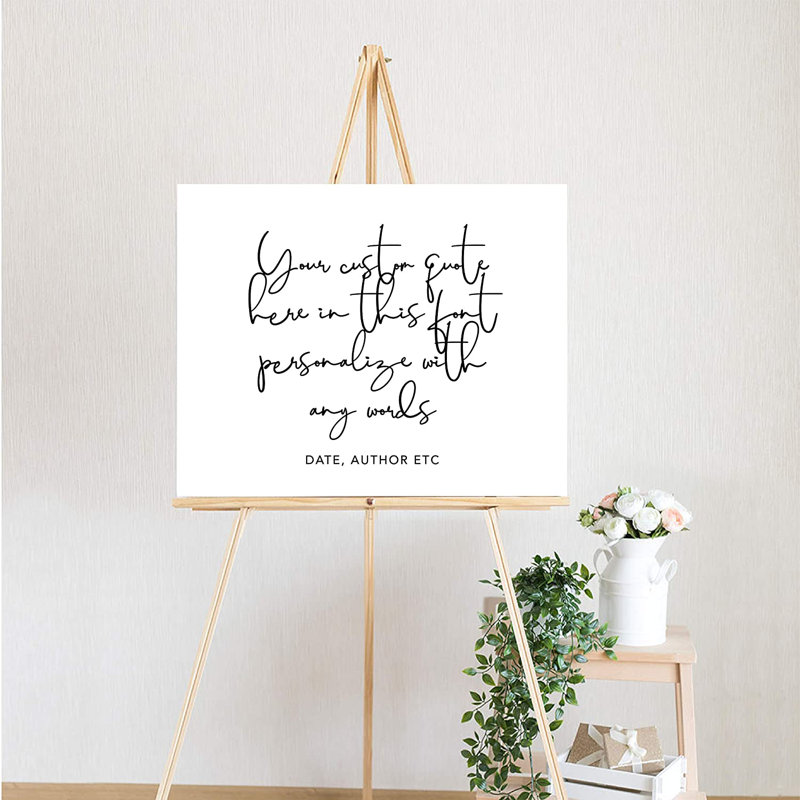 Your custom quote
here in this font
personalize with
any words
DATE, AUTHOR ETC